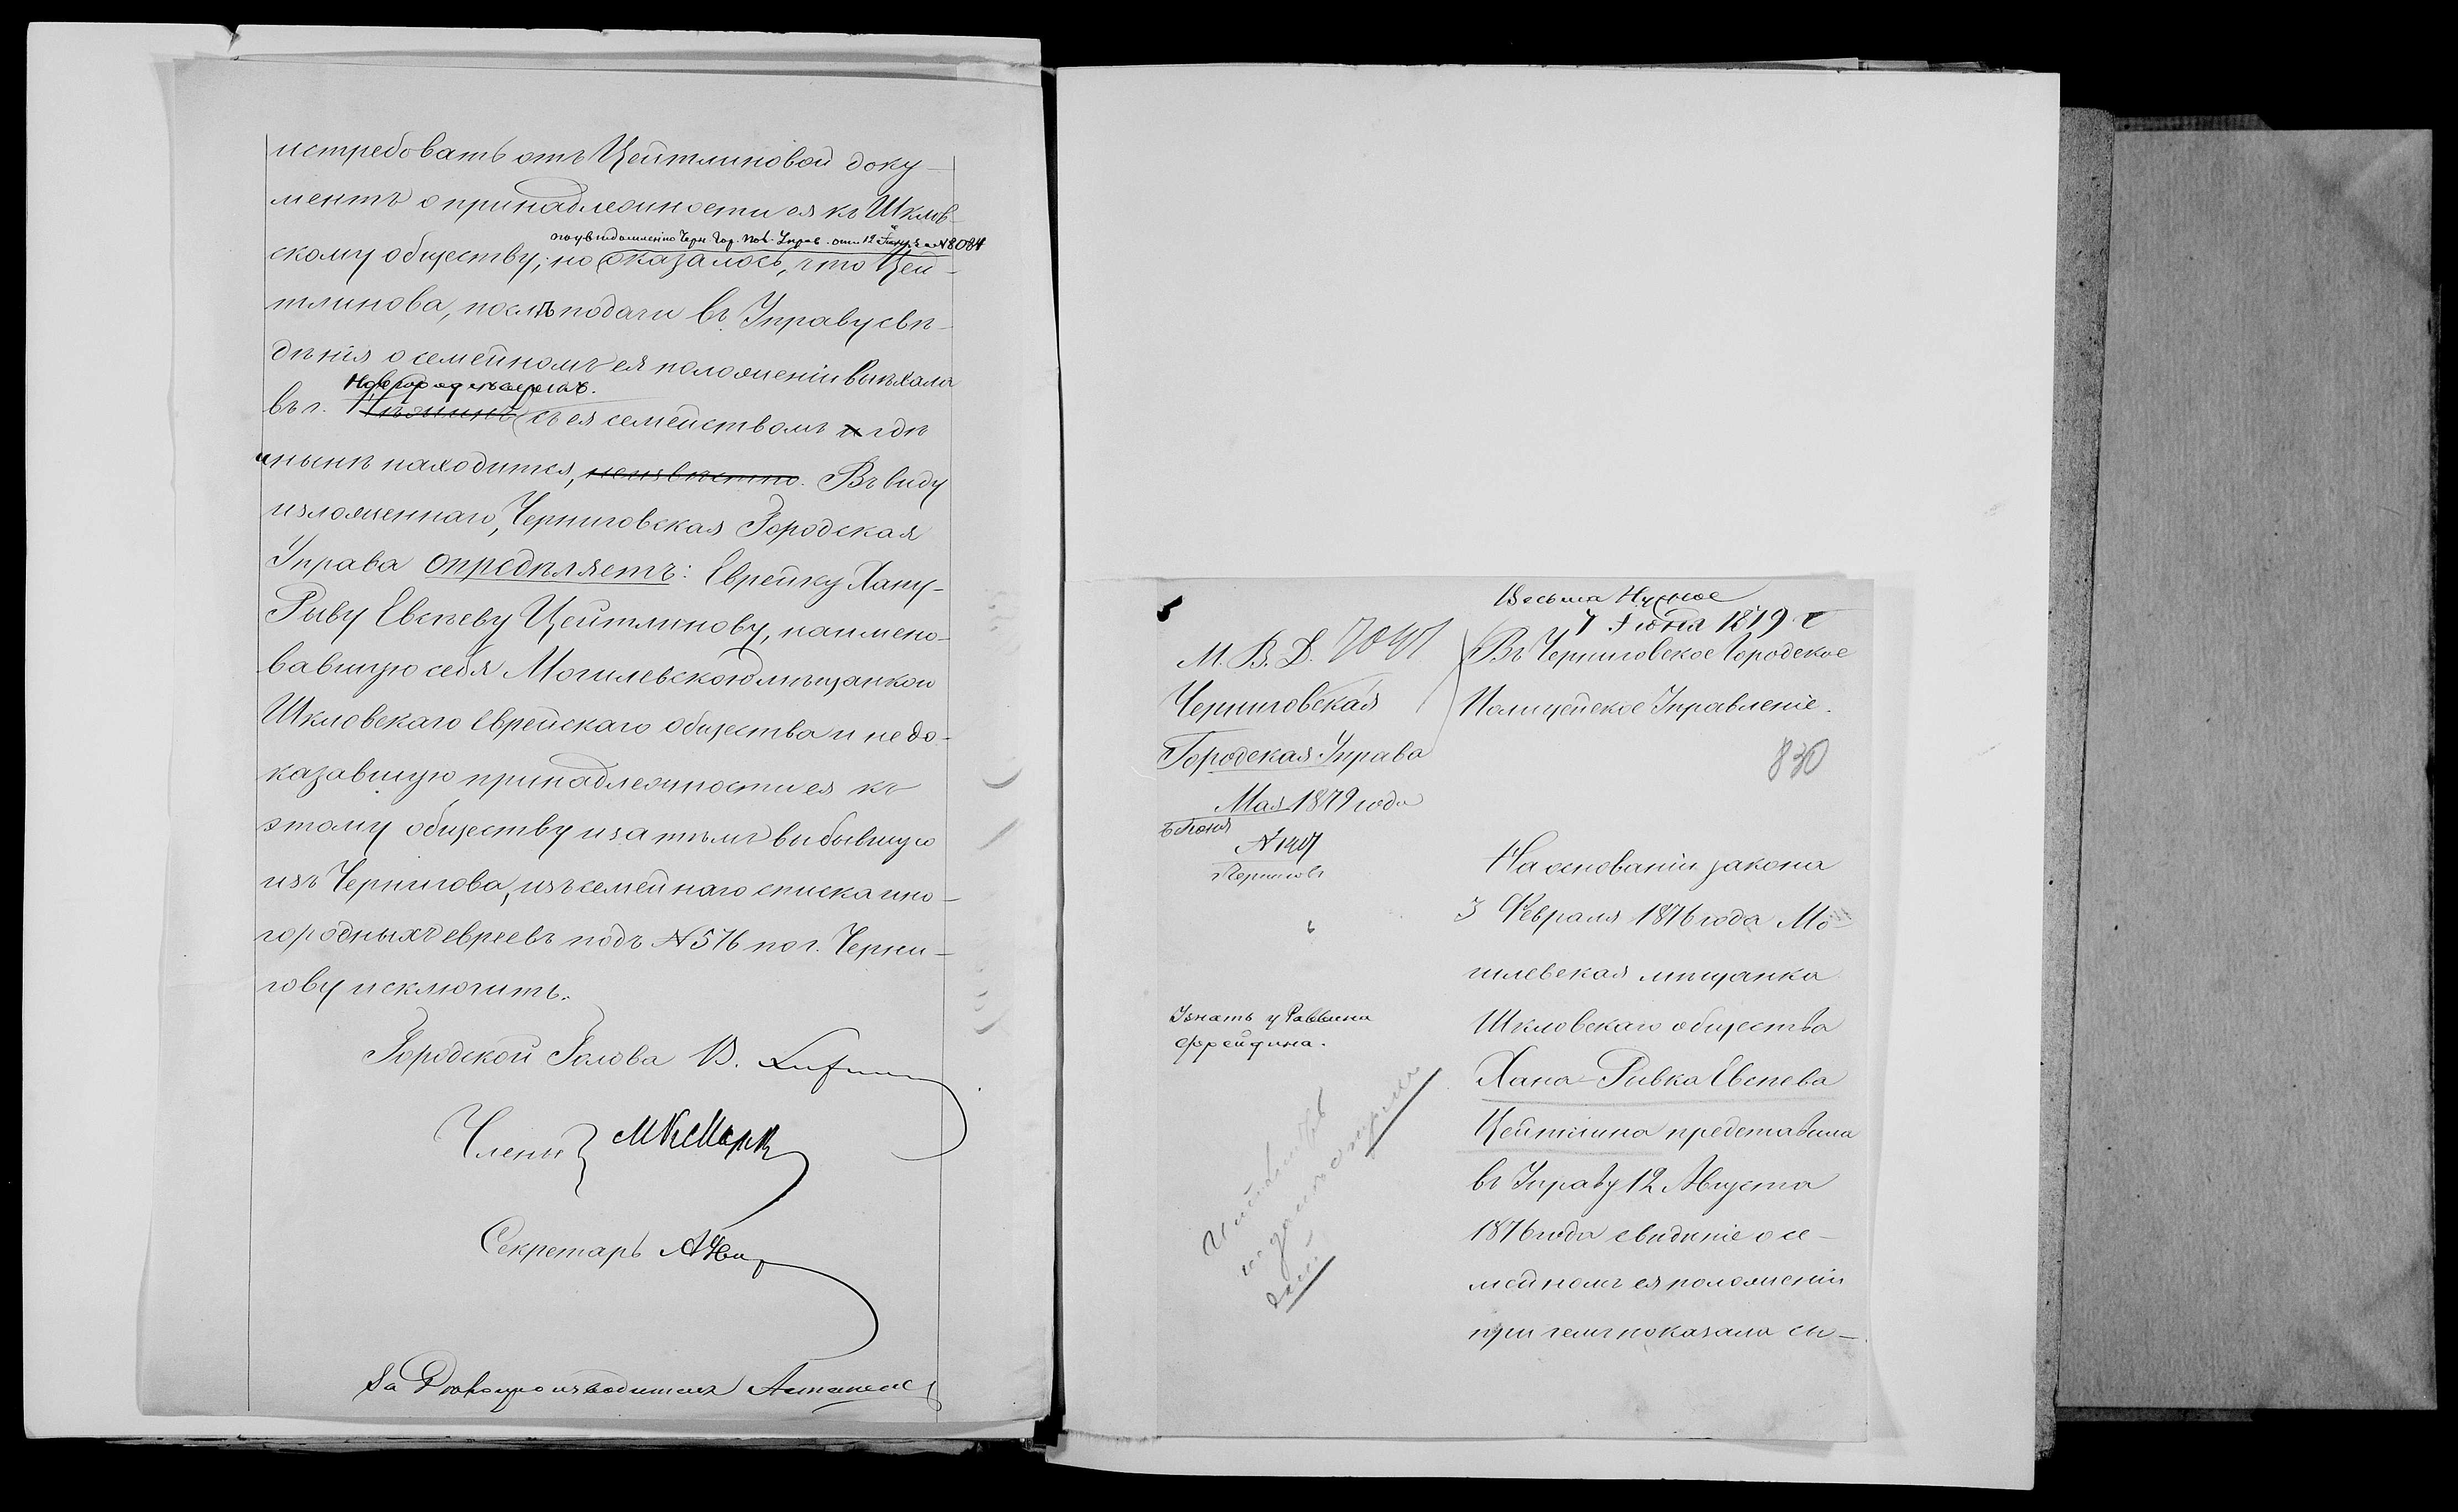 истребовать отъ Цейтлиновой доку-
ментъ о принадлежности ея къ Шклов-
по увѣдомленію Черн. Гор. Пол. Управ. отъ 12 Іюня за № 8084
скому обществу; но оказалось, что Цей-
тлинова, послѣ подачи въ Управу свѣ-
дѣнія о семейномъ ея положеніи выѣхала
Новгородсѣверскъ.
въ г. Нѣжинъ съ ея семействомъ и гдѣ
и нынѣ находится, неизвѣстно. Въ виду
изложеннаго, Черниговская Городская
Управа опредѣляетъ: Еврейку Хану-
Рыву Евсѣеву Цейтлинову, наимено-
вавшую себя Могилевскою мѣщанкою
Шкловскаго Еврейскаго общества и не до-
казавшую принадлежности ея къ
этому обществу и затѣмъ выбывшую
изъ Чернигова, изъ семейнаго списка ино-
городныхъ евреевъ подъ № 576 по г. Черни-
гову исключить.
Городской Голова В.
Члены
Секретарь
За Дѣлопроизводителя
Весьма Нужное
7 Іюня 1879 г
М. В. Д.
Черниговская
Городская Управа
Мая 1879 года
6 Іюня
№ 1407
Черниговъ
Узнать у Раввина
Фрейдина.
Въ Черниговское Городское
Полицейское Управленіе.
830
На основаніи закона
3 Февраля 1876 года Мо-
гилевская мѣщанка
Шкловскаго общества
Хана-Ривка Евсѣева
Цейтлина представила
въ Управу 12 Августа
1876 года свидѣніе о се-
мейномъ ея положеніи
при чемъ показала сы-